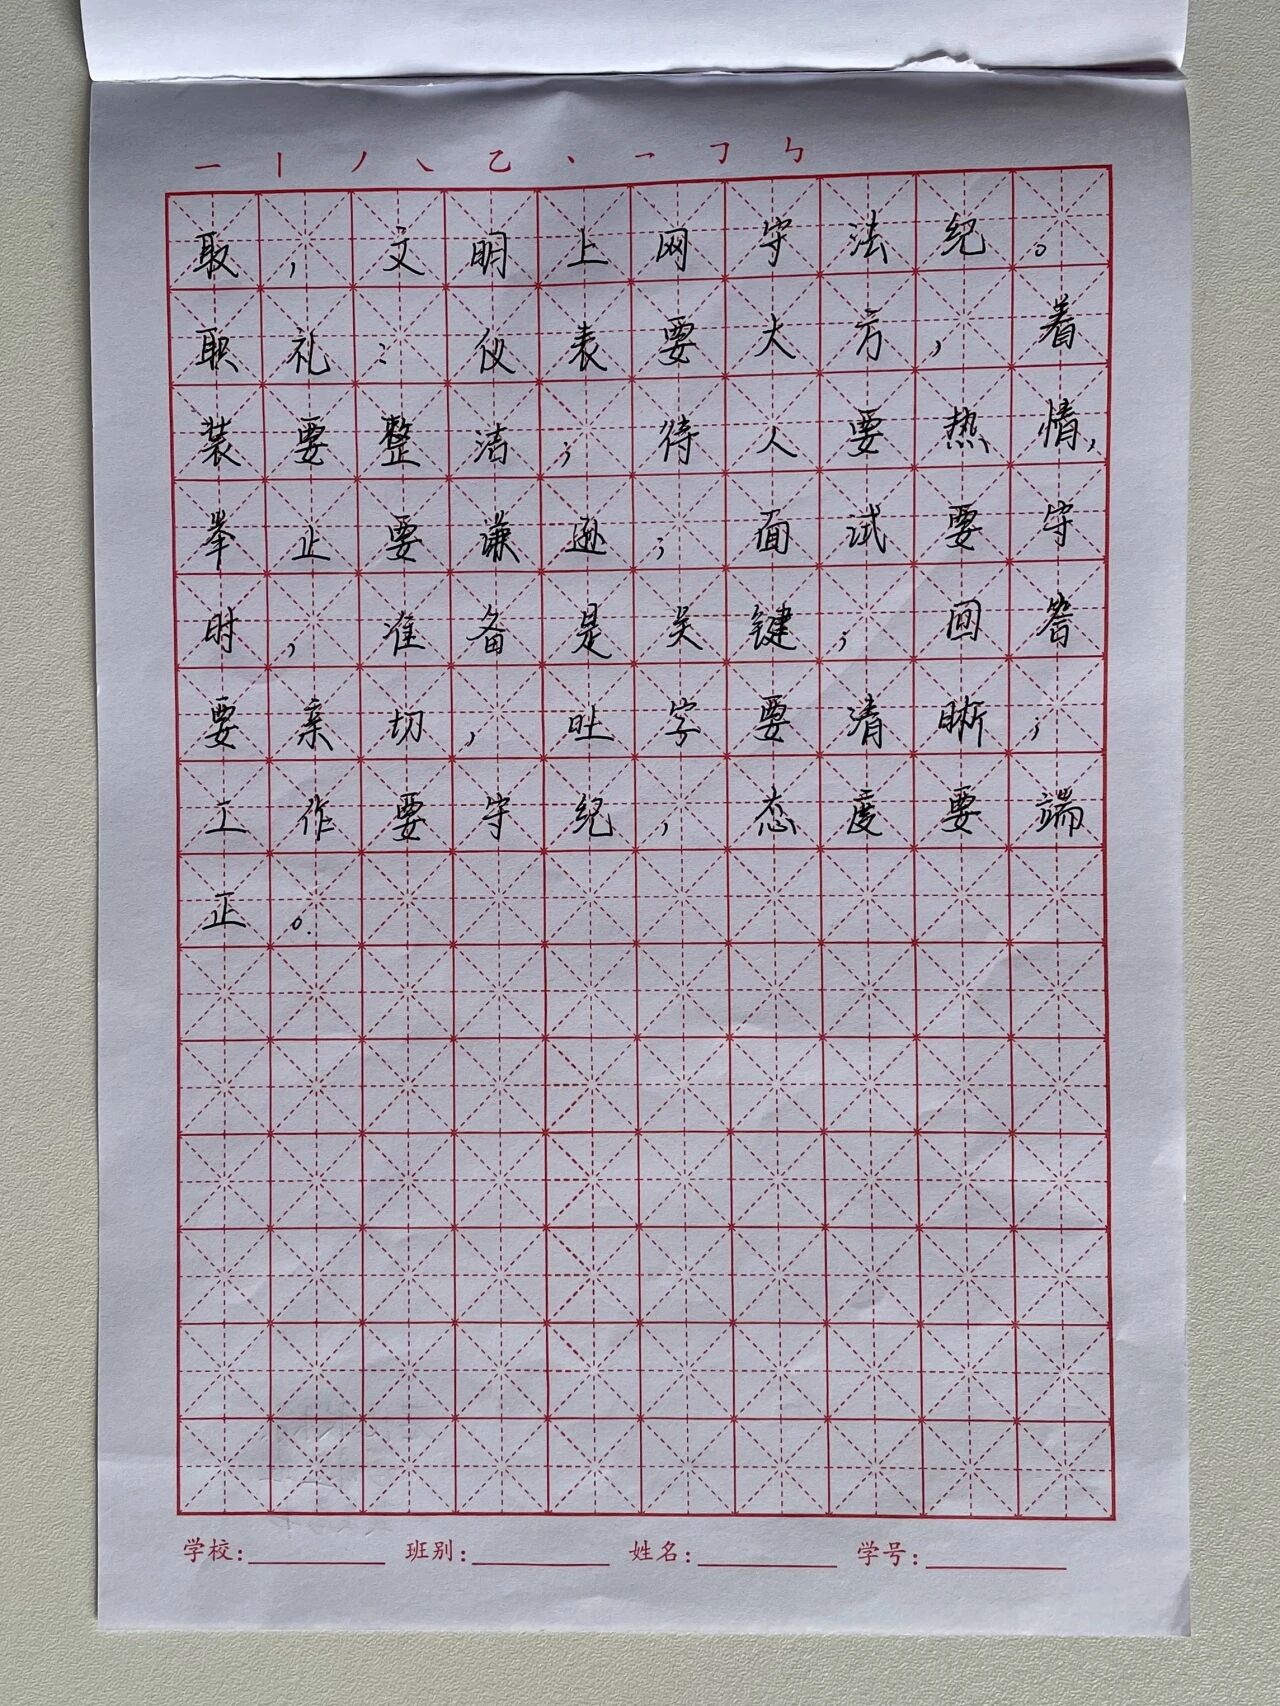 一丨丿㇏乙丶㇖𠃌ㄣ
取，文明上网守法纪。
职礼：仪表要大方，着
装要整洁；待人要热情，
举止要谦逊；面试要守
时，准备是关键；回答
要亲切，吐字要清晰；
工作要守纪，态度要端
正。
学校：________ 班别：________ 姓名：________ 学号：________